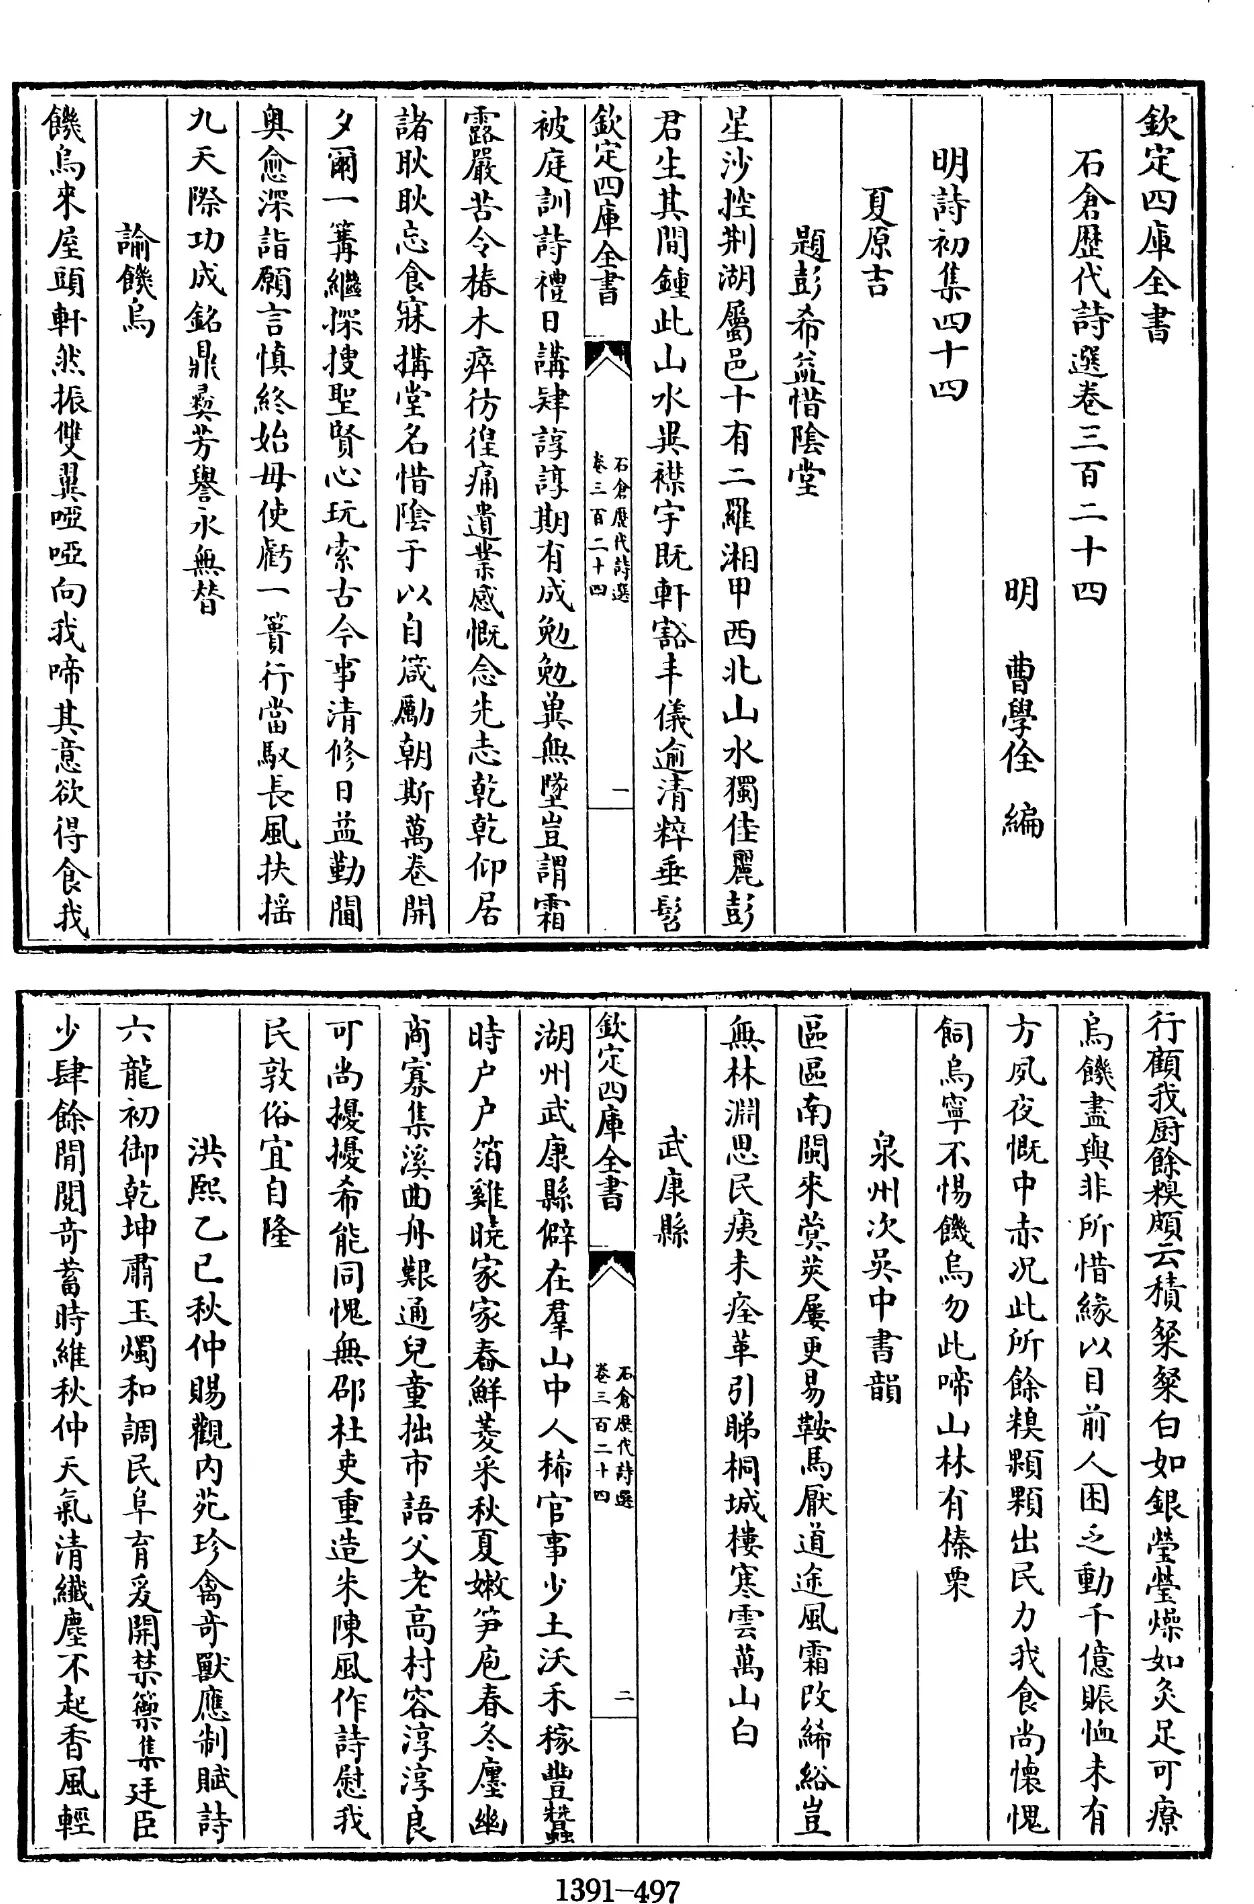 欽定四庫全書
石倉歴代詩選卷三百二十四
明　曹學佺　編
明詩初集四十四
夏原吉
題彭希益惜陰堂
星沙控荆湖屬邑十有二羅湘甲西北山水獨佳麗彭
君生其間鍾此山水異襟宇既軒豁丰儀逾清粹垂髫
欽定四庫全書
石倉歷代詩選
卷三百二十四
一
被庭訓詩禮日講肄諄諄期有成勉勉兾無墜豈謂霜
露嚴苦令椿木瘁彷徨痛遺業感慨念先志乾乾仰居
諸耿耿忘食寐搆堂名惜陰于以自箴勵朝斯萬卷開
夕爾一篝繼探搜聖賢心玩索古今事清修日益勤閫
奥愈深詣願言慎終始毋使虧一簣行當馭長風扶揺
九天際功成銘鼎彛芳譽永無替
諭饑烏
饑烏來屋頭軒然振雙翼啞啞向我啼其意欲得食我
行顧我厨餘糗頗云積粲粲白如銀瑩瑩燥如炙足可療
烏饑盡與非所惜緣以目前人困乏動千億賑恤未有
方夙夜慨中赤况此所餘糗顆顆出民力我食尚懷愧
飼烏寧不惕饑烏勿此啼山林有榛栗
泉州次吴中書韻
區區南閩來蓂莢屢更易鞍馬厭道途風霜改絺綌豈
無林淵思民痍未痊革引睇桐城樓寒雲萬山白
武康縣
欽定四庫全書
石倉歷代詩選
卷三百二十四
二
湖州武康縣僻在羣山中人稀官事少土沃禾稼豐蠶
時户户箔雞曉家家舂鮮菱采秋夏嫩笋庖春冬廛幽
商寡集溪曲舟艱通兒童拙市語父老高村容淳淳良
可尚擾擾希能同愧無邵杜吏重造朱陳風作詩慰我
民敦俗宜自隆
洪熙乙巳秋仲賜觀内苑珍禽奇獸應制賦詩
六龍初御乾坤肅玉燭和調民阜育爰開禁籞集廷臣
少肆餘閒閲奇蓄時維秋仲天氣清纖塵不起香風輕
1391-497